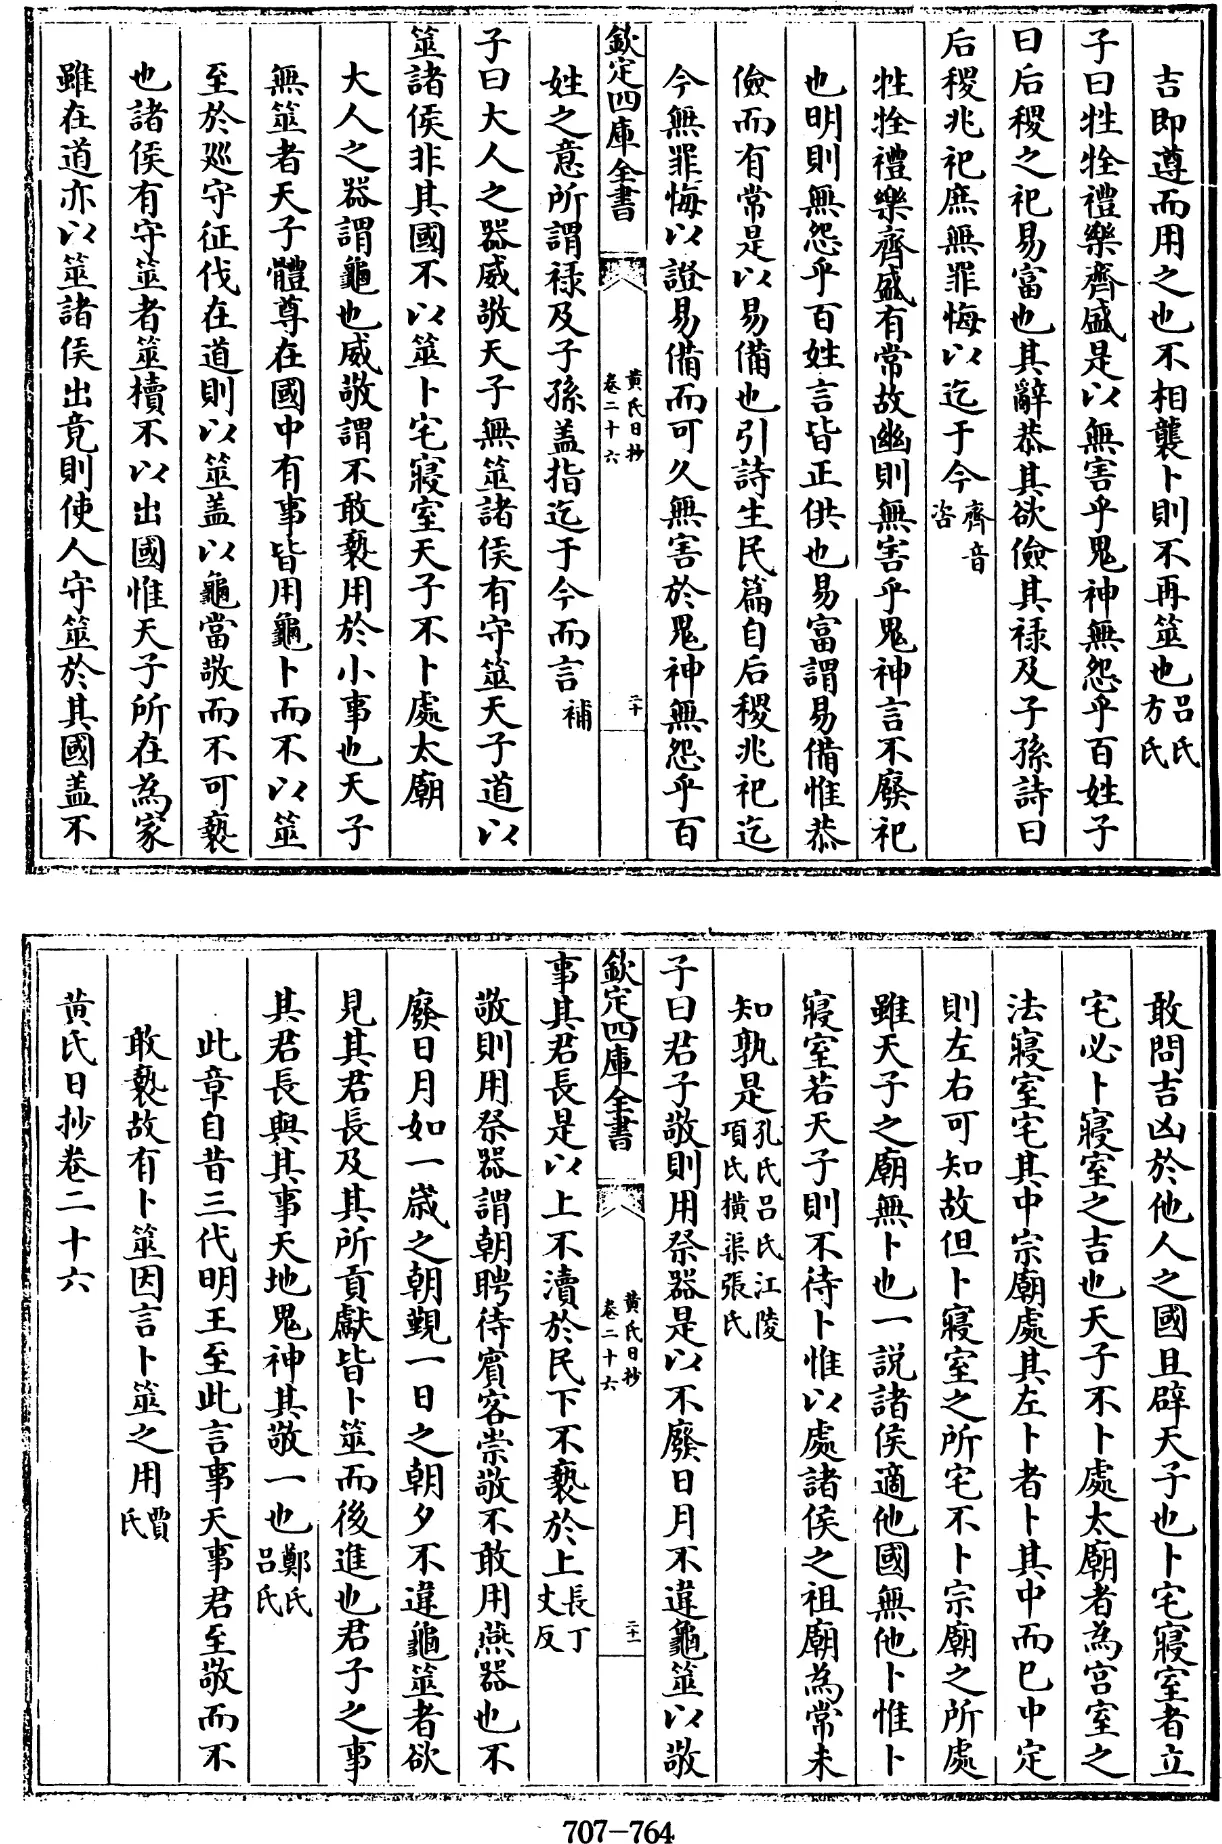 吉即遵而用之也不相襲卜則不再筮也吕氏方氏
子曰牲牷禮樂齊盛是以無害乎鬼神無怨乎百姓子
曰后稷之祀易富也其辭恭其欲儉其禄及子孫詩曰
后稷兆祀庶無罪悔以迄于今齊音咨
牲牷禮樂齊盛有常故幽則無害乎鬼神言不廢祀
也明則無怨乎百姓言皆正供也易富謂易備惟恭
儉而有常是以易備也引詩生民篇自后稷兆祀迄
今無罪悔以證易備而可久無害於鬼神無怨乎百
欽定四庫全書
黄氏日抄
卷二十六
二十
姓之意所謂禄及子孫盖指迄于今而言補
子曰大人之器威敬天子無筮諸侯有守筮天子道以
筮諸侯非其國不以筮卜宅寢室天子不卜處太廟
大人之器謂龜也威敬謂不敢褻用於小事也天子
無筮者天子體尊在國中有事皆用龜卜而不以筮
至於廵守征伐在道則以筮盖以龜當敬而不可褻
也諸侯有守筮者筮櫝不以出國惟天子所在為家
雖在道亦以筮諸侯出竟則使人守筮於其國盖不
敢問吉凶於他人之國且辟天子也卜宅寢室者立
宅必卜寢室之吉也天子不卜處太廟者為宫室之
法寢室宅其中宗廟處其左卜者卜其中而已中定
則左右可知故但卜寢室之所宅不卜宗廟之所處
雖天子之廟無卜也一説諸侯適他國無他卜惟卜
寢室若天子則不待卜惟以處諸侯之祖廟為常未
知孰是孔氏吕氏江陵項氏横渠張氏
子曰君子敬則用祭器是以不廢日月不違龜筮以敬
欽定四庫全書
黄氏日抄
卷二十六
二十一
事其君長是以上不瀆於民下不褻於上長丁丈反
敬則用祭器謂朝聘待賓客崇敬不敢用燕器也不
廢日月如一歲之朝覲一日之朝夕不違龜筮者欲
見其君長及其所貢獻皆卜筮而後進也君子之事
其君長與其事天地鬼神其敬一也鄭氏吕氏
此章自昔三代明王至此言事天事君至敬而不
敢褻故有卜筮因言卜筮之用賈氏
黄氏日抄卷二十六
707-764